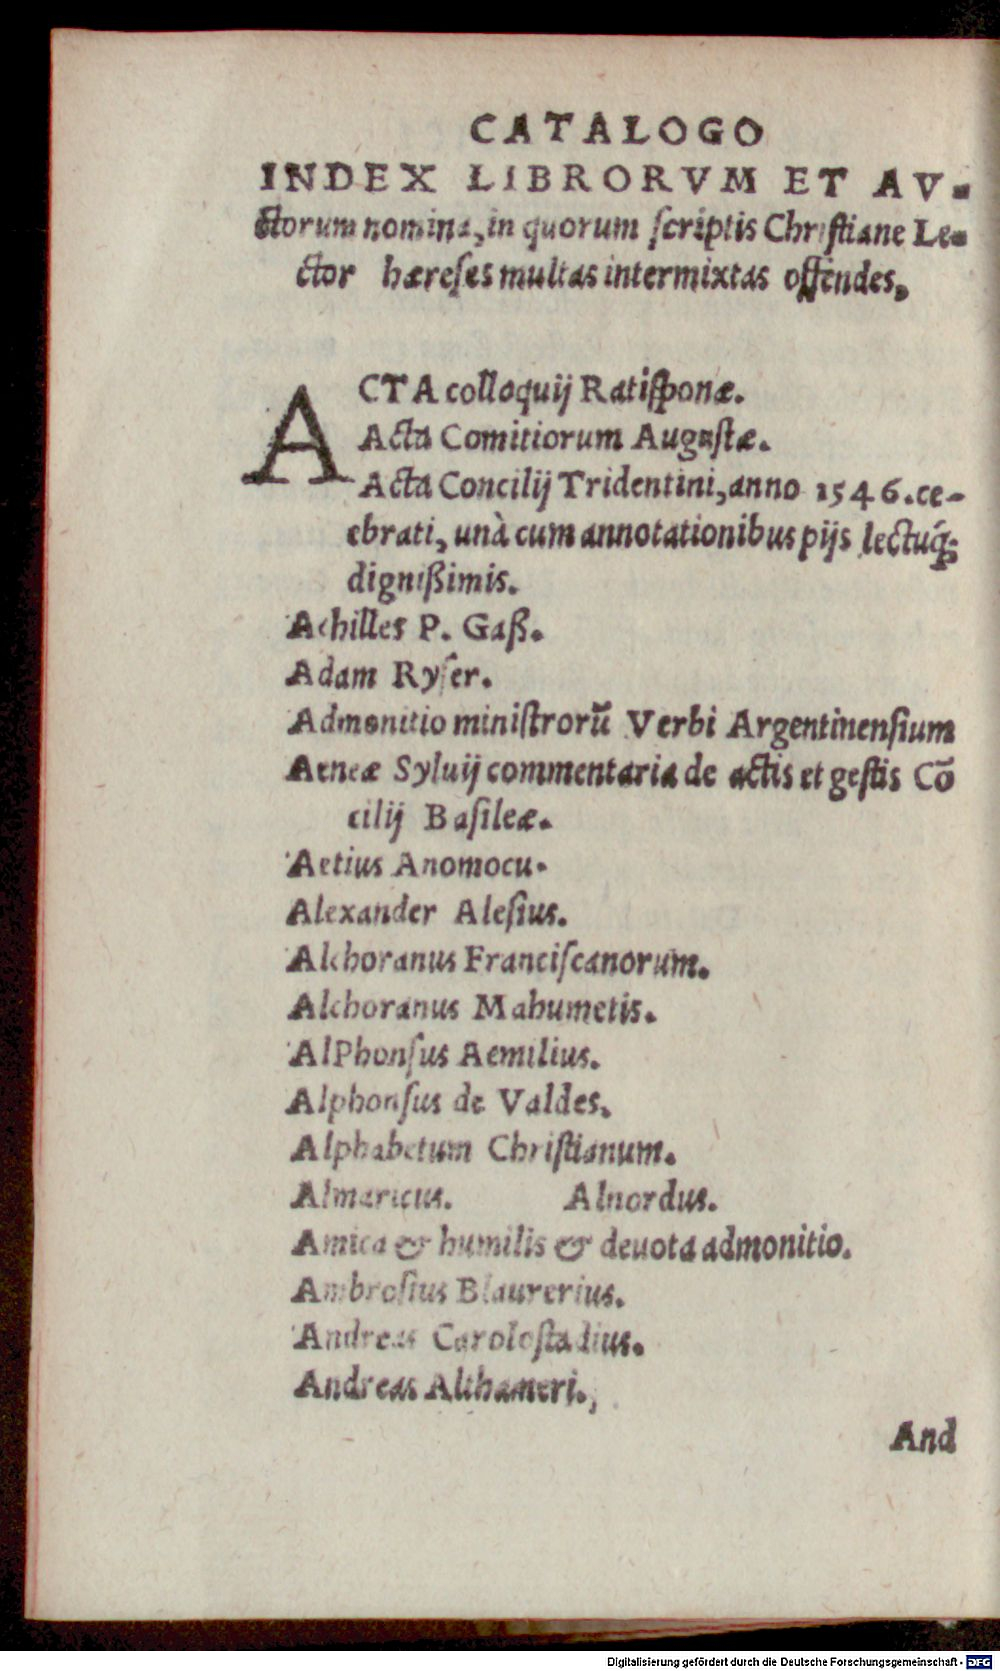 CATALOGO
INDEX LIBRORVM ET AV-
ctorum nomina, in quorum ſcriptis Chriſtiane Le-
ctor hæreſes multas intermixtas offendes.
ACTA colloquij Ratiſponæ.
Acta Comitiorum Auguſtæ.
Acta Concilij Tridentini, anno 1546. ce-
ebrati, unà cum annotationibus pijs lectuq́;
dignißimis.
Achilles P. Gaß.
Adam Ryſer.
Admonitio miniſtrorũ Verbi Argentinenſium
Aeneæ Syluij commentaria de actis et geſtis Cõ
cilij Baſileæ.
Aetius Anomocu.
Alexander Aleſius.
Alchoranus Franciſcanorum.
Alchoranus Mahumetis.
AlPhonſus Aemilius.
Alphonſus de Valdes.
Alphabetum Chriſtianum.
Almaricus. Alnordus.
Amica & humilis & deuota admonitio.
Ambroſius Blaurerius.
Andreas Caroloſtadius.
Andreas Althameri.
And
Digitalisierung gefördert durch die Deutsche Forschungsgemeinschaft - DFG